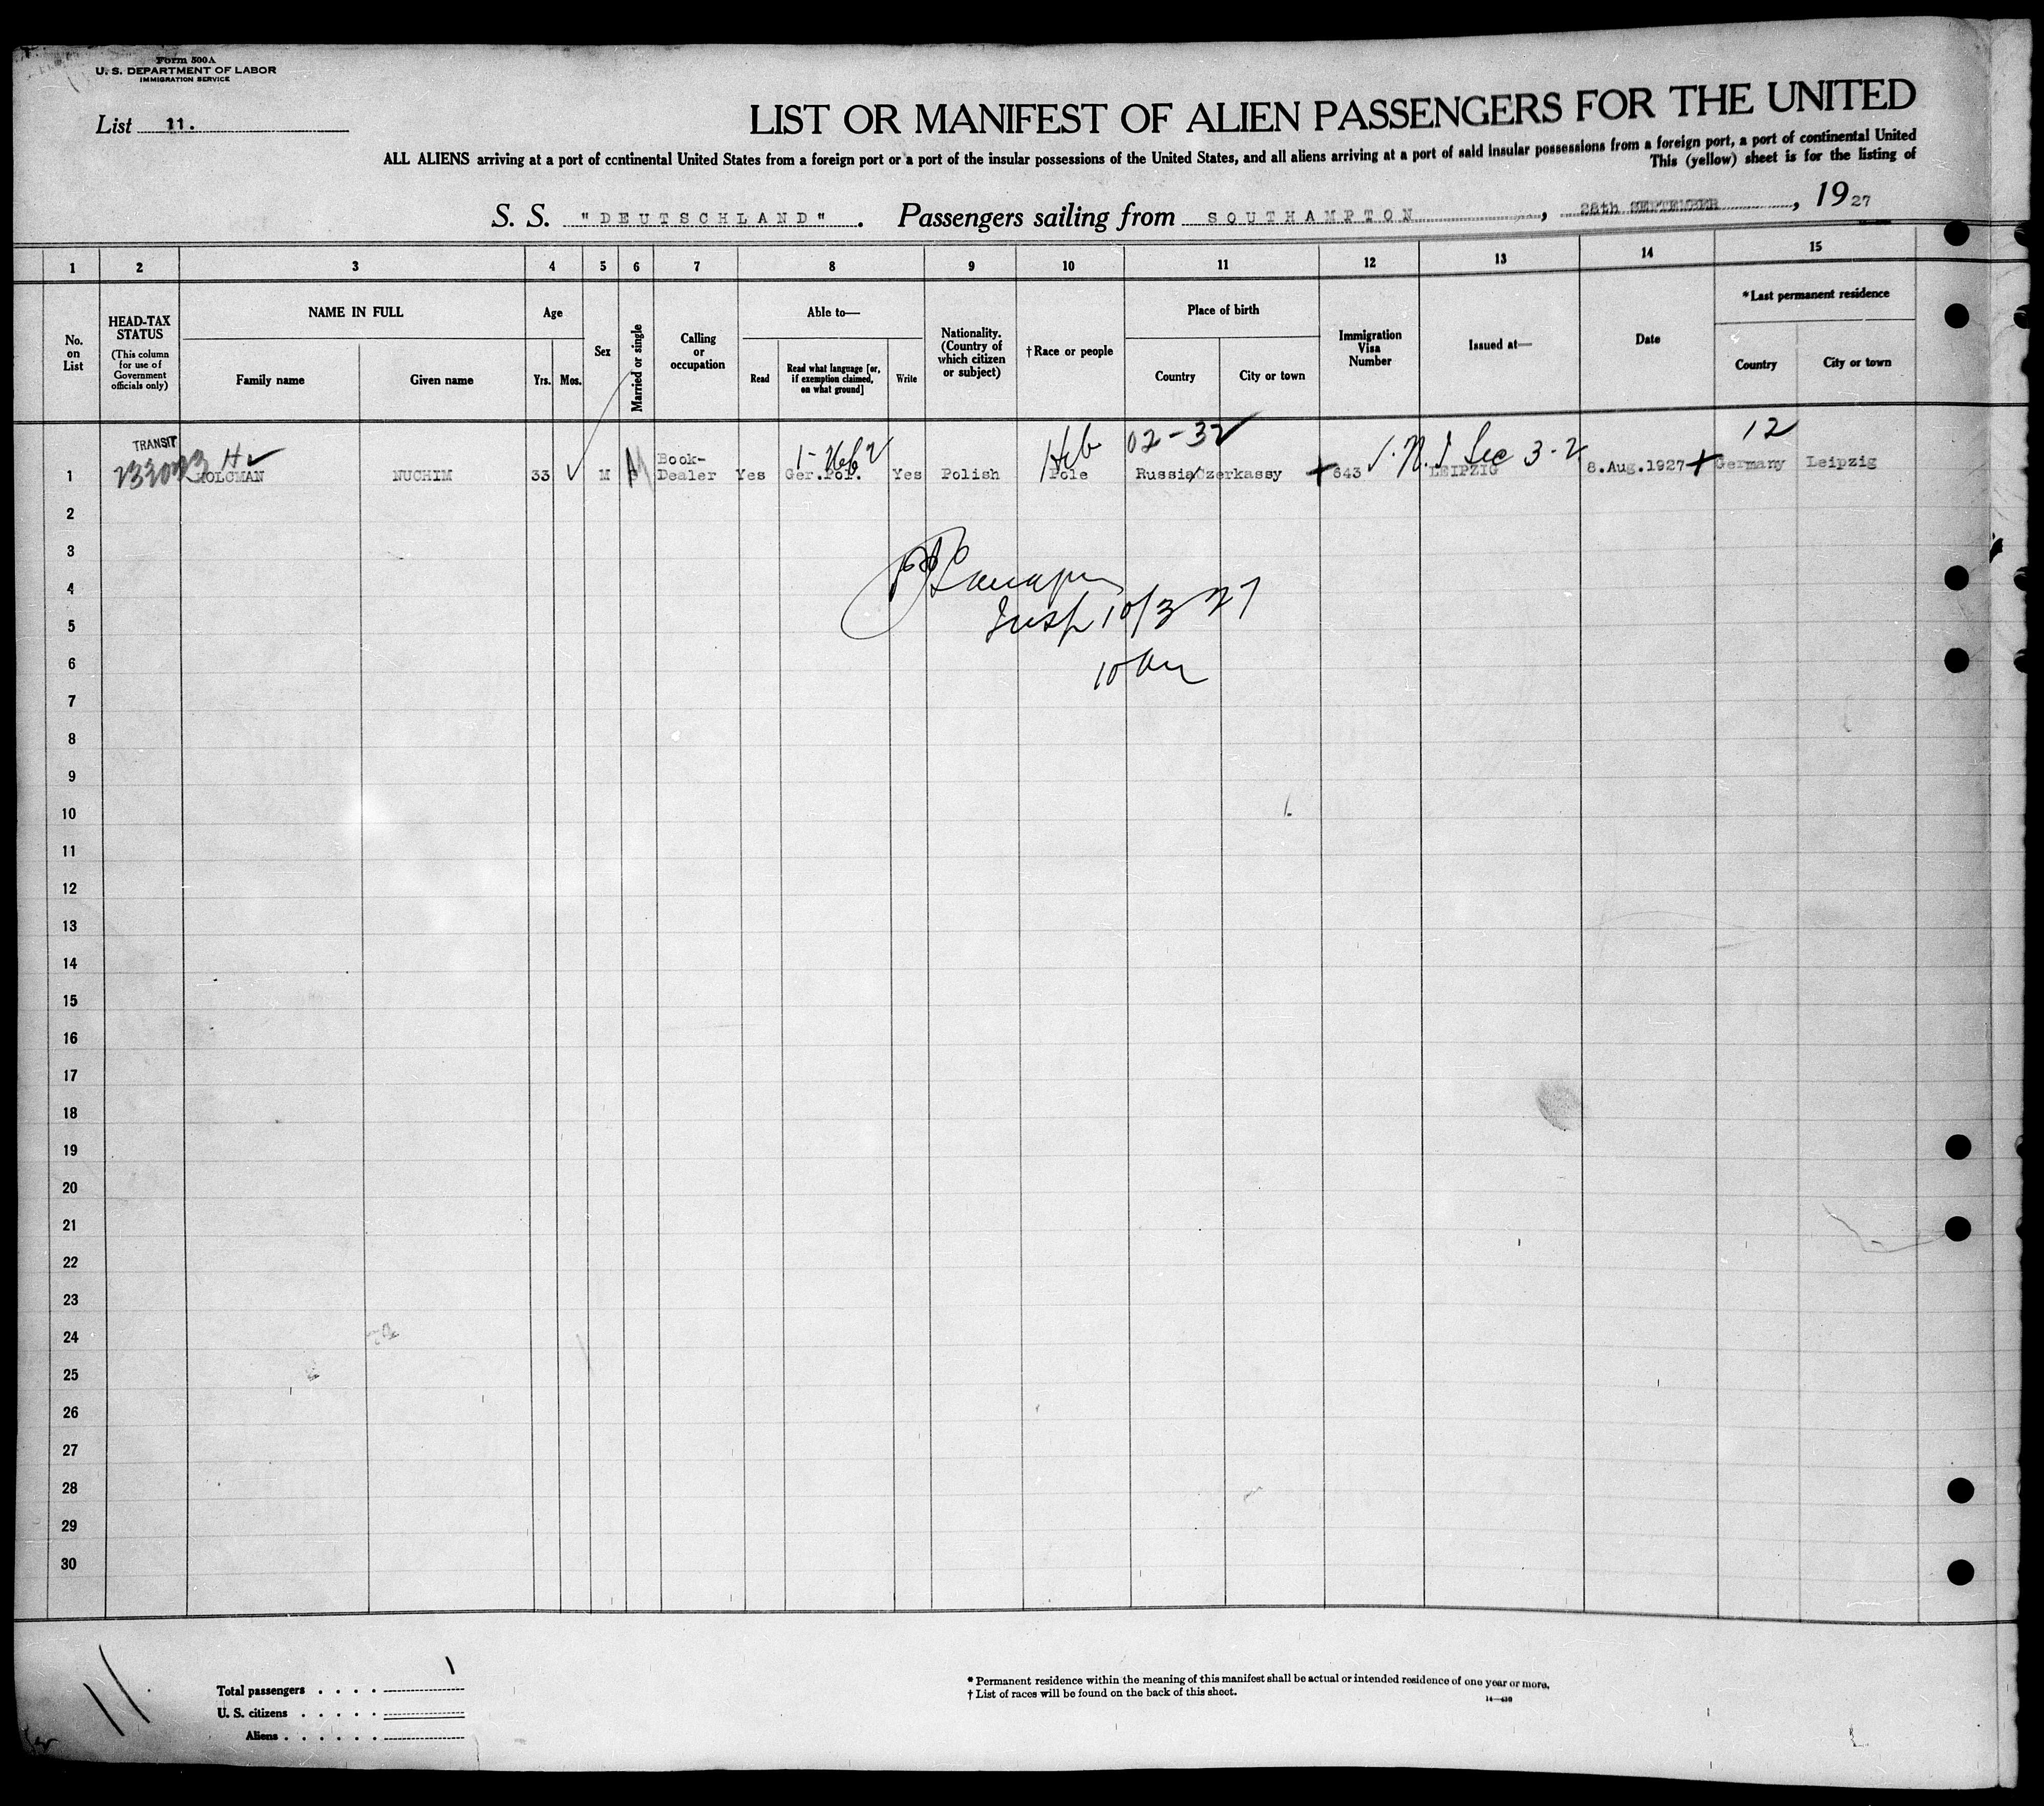 Form 500A
U. S. DEPARTMENT OF LABOR
IMMIGRATION SERVICE
List 11.
LIST OR MANIFEST OF ALIEN PASSENGERS FOR THE UNITED
ALL ALIENS arriving at a port of continental United States from a foreign port or a port of the insular possessions of the United States, and all aliens arriving at a port of said insular possessions from a foreign port, a port of continental United
This (yellow) sheet is for the listing of
S. S. "DEUTSCHLAND". Passengers sailing from SOUTHAMPTON, 28th SEPTEMBER, 1927
1 2 3 4 5 6 7 8 9 10 11 12 13 14 15
No. on List
HEAD-TAX STATUS (This column for use of Government officials only)
NAME IN FULL
Family name Given name
Age
Yrs. Mos.
Sex
Married or single
Calling or occupation
Able to—
Read Read what language [or, if exemption claimed, on what ground] Write
Nationality. (Country of which citizen or subject)
† Race or people
Place of birth
Country City or town
Immigration Visa Number
Issued at—
Date
*Last permanent residence
Country City or town
TRANSIT H 1- Heb Heb 02-32 Sec 3-2 12
1 HOLCMAN NUCHIM 33 M M Book-Dealer Yes Ger.Pol. Yes Polish Pole Russia Czerkassy 643 LEIPZIG 8.Aug.1927 Germany Leipzig
2
3
4
5
Insp 10/3 27
6
7
8
9
10
11
12
13
14
15
16
17
18
19
20
21
22
23
24
25
26
27
28
29
30
11
Total passengers . . . . 1
U. S. citizens . . . . .
Aliens . . . . . .
* Permanent residence within the meaning of this manifest shall be actual or intended residence of one year or more.
† List of races will be found on the back of this sheet.
14—430